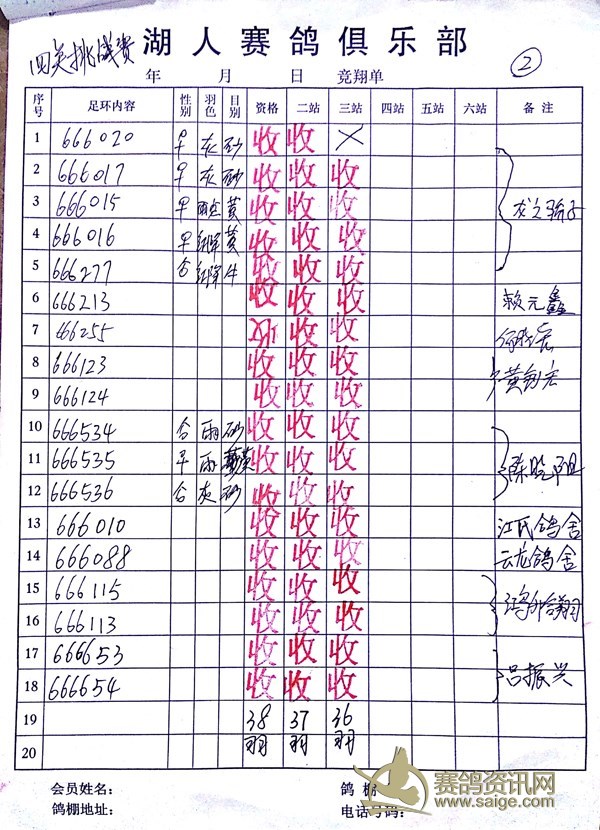 四关挑战费 湖人赛鸽俱乐部
年 月 日 竞翔单 ②
序号 足环内容 性别 羽色 目别 资格 二站 三站 四站 五站 六站 备注
1 666020 早 灰 砂 收 收 ×
2 666017 早 灰 砂 收 收 收
3 666015 早 黄 收 收 收
4 666016 早 黄 收 收 收
5 666277 合 牛 收 收 收
6 666213 收 收 收 赖元鑫
7 666255 收 收 收
8 666123 收 收 收
9 666124 收 收 收
10 666534 合 雨 砂 收 收 收
11 666535 早 雨 黄 收 收 收
12 666536 合 灰 砂 收 收 收
13 666010 收 收 收 江氏鸽舍
14 666088 收 收 收 云龙鸽舍
15 666115 收 收 收
16 666113 收 收 收
17 666653 收 收 收
18 666654 收 收 收 吕振兴
19 38 37 36
20 羽 羽 羽
会员姓名: 鸽棚
鸽棚地址: 电话号码:
赛鸽资讯网
www.saige.com